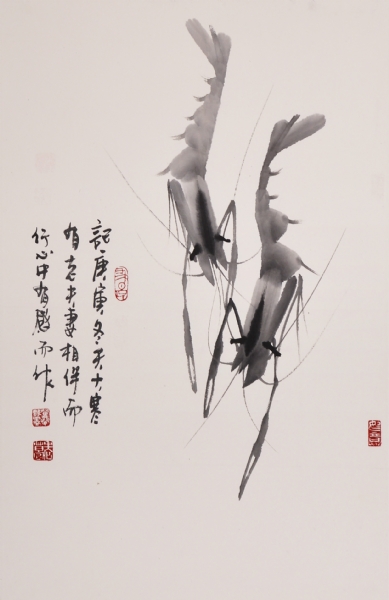 記庚寅冬天寒
有老夫妻相伴而
行心中有感而作